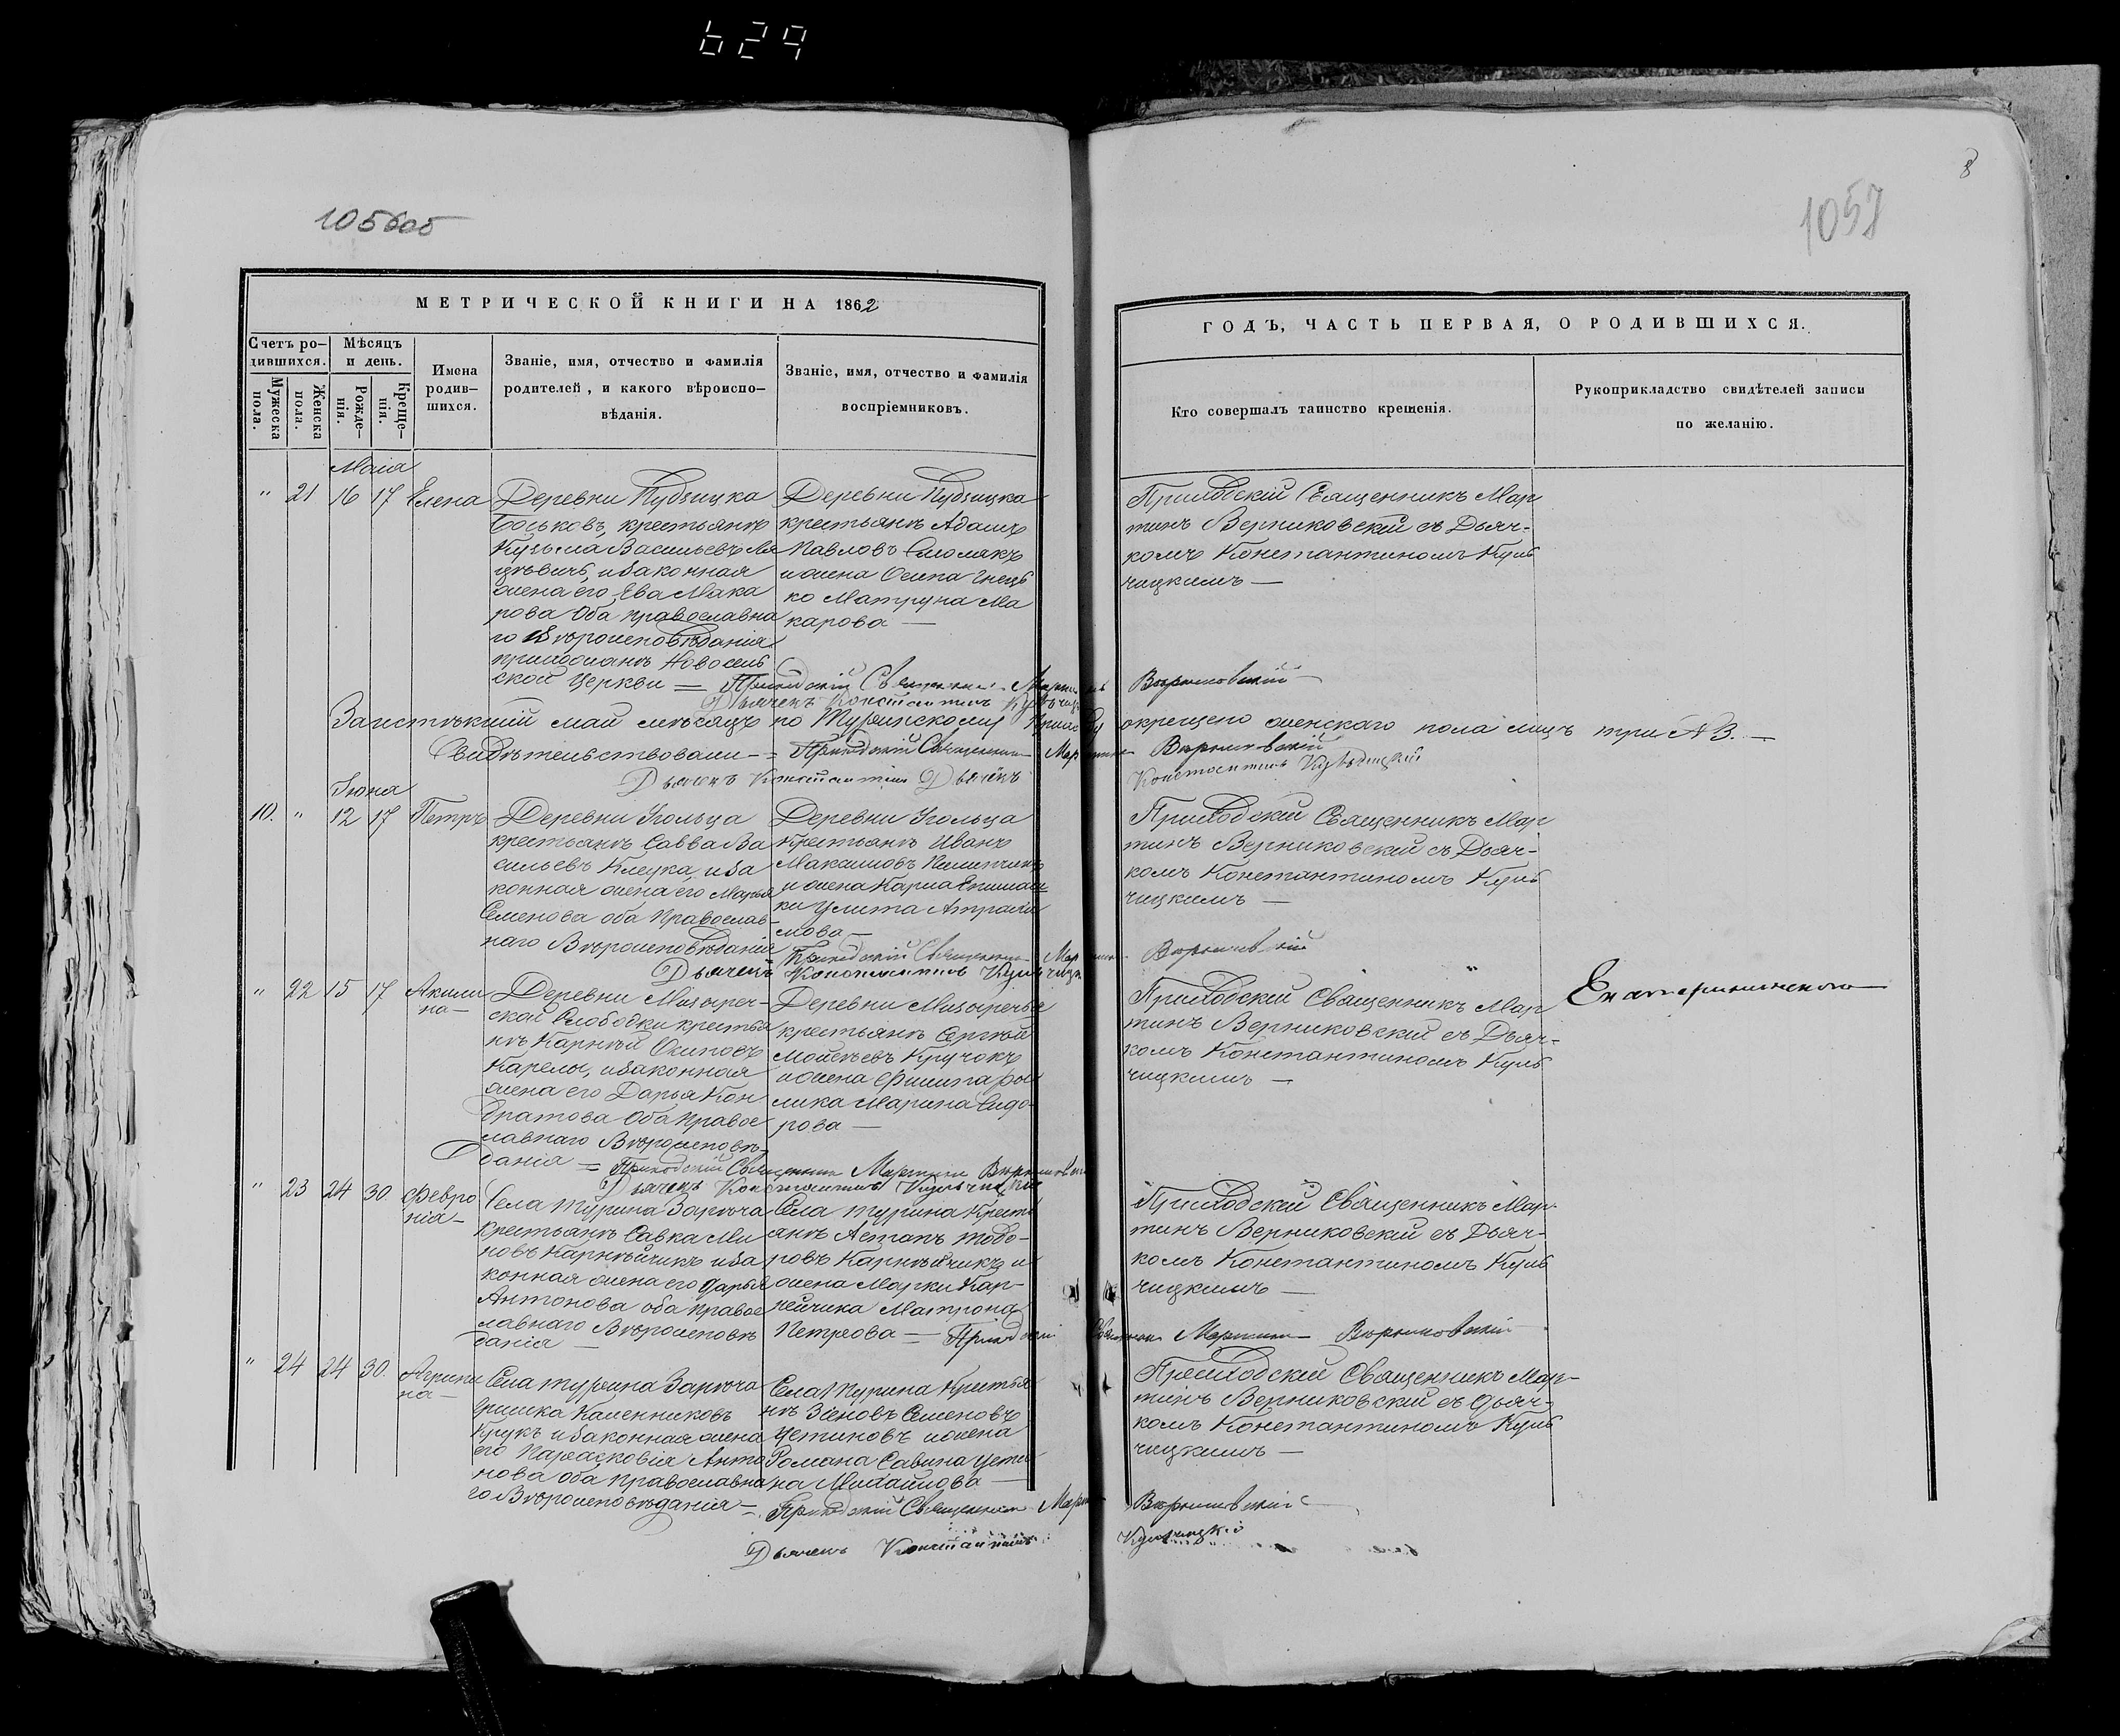 629
105
1057
8
МЕТРИЧЕСКОЙ КНИГИ НА 1862
ГОДЪ, ЧАСТЬ ПЕРВАЯ, О РОДИВШИХСЯ.
Счетъ ро-
дившихся.
Мужеска
пола.
Женска
пола.
Мѣсяцъ
и день.
Рожде-
нія.
Креще-
нія.
Имена
родив-
шихся.
Званіе, имя, отчество и фамилія
родителей, и какого вѣроиспо-
вѣданія.
Званіе, имя, отчество и фамилія
воспріемниковъ.
Кто совершалъ таинство крещенія.
Рукоприкладство свидѣтелей записи
по желанію.
Маія
" 21 16 17 Елена
Деревни
крестьянъ
Кузьма Васильевъ
и законная
жена его Ева Мака
рова Оба православна
го Вѣроисповѣданія
прихожанъ Новосель
ской Церкви =
Деревни
крестьянъ Адамъ
Павловъ
и жена Осипа
ко Матруна Ма
карова —
Приходскій Священникъ Мар
тинъ Верниковскій съ Дьяч-
комъ Константиномъ Куль
чицкимъ —
Приходскій Священникъ Мартинъ Верниковскій
Дьячекъ Константинъ
май мѣсяцъ по Туринскому приходу окрещено женскаго пола лицъ три № 3. —
Свидѣтельствовали = Приходскій Священникъ Мартинъ Верниковскій
Дьячекъ Константинъ Дьячекъ
Константинъ Кульчицкій
Іюня
10. " 12 17 Петръ
Деревни Угольца
крестьянъ Савва Ва
сильевъ Клецка, и за
конная жена его Марья
Семенова оба Православ-
наго Вѣроисповѣданія
Деревни Угольца
Крестьянъ Иванъ
Максимовъ
и жена Карпа
ки Улита
мова —
Приходскій Священникъ Мар
тинъ Верниковскій съ Дьяч-
комъ Константиномъ Куль
чицкимъ —
Приходскій Священникъ Мартинъ Верниковскій
Дьячекъ Константинъ Кульчицкій
" 22 15 17 Акили
на —
Деревни
ской Слободки крестья
нъ Карнѣй Осиповъ
и законная
жена его Дарья Кон
дратова Оба Право
славнаго Вѣроисповѣ-
данія =
Деревни
крестьянъ Сергѣй
Моисѣевъ Кручокъ,
и жена Филипа
лика Марина Сидо-
рова —
Приходскій Священникъ Мар
тинъ Верниковскій съ Дьяч-
комъ Константиномъ Куль
чицкимъ —
Приходскій Священникъ Мартинъ Верниковскій
Дьячекъ Константинъ Кульчицкій
" 23 24 30 Февро
нія —
Села Турина Зарѣча
Крестьянъ Савка Ми
новъ Карнѣйчикъ и за
конная жена его Дарья
Антонова оба право
славнаго Вѣроисповѣ
данія —
Села Турина Кресть
янъ Астапъ Тодо-
ровъ Карнѣйчикъ и
жена Марки Кар-
нейчика Матрона
Петрова —
Приходскій Священникъ Мар-
тинъ Верниковскій съ Дьяч-
комъ Константиномъ Куль
чицкимъ —
Приходскій Священникъ Мартинъ Верниковскій
" 24 24 30. Агрипи
на —
Села Турина Зарѣча
Гришка Каленниковъ
Крукъ и законная жена
его Парасковія Анто
нова оба православна
го Вѣроисповѣданія —
Села Турина Крестья
нъ Семеновъ
Устиновъ и жена
Романа Савина Усти
на Михайлова —
Приходскій Священникъ Мар-
тинъ Верниковскій съ Дьяч-
комъ Константиномъ Куль
чицкимъ —
Приходскій Священникъ Мартинъ Верниковскій
Дьячекъ Константинъ Кульчицкій